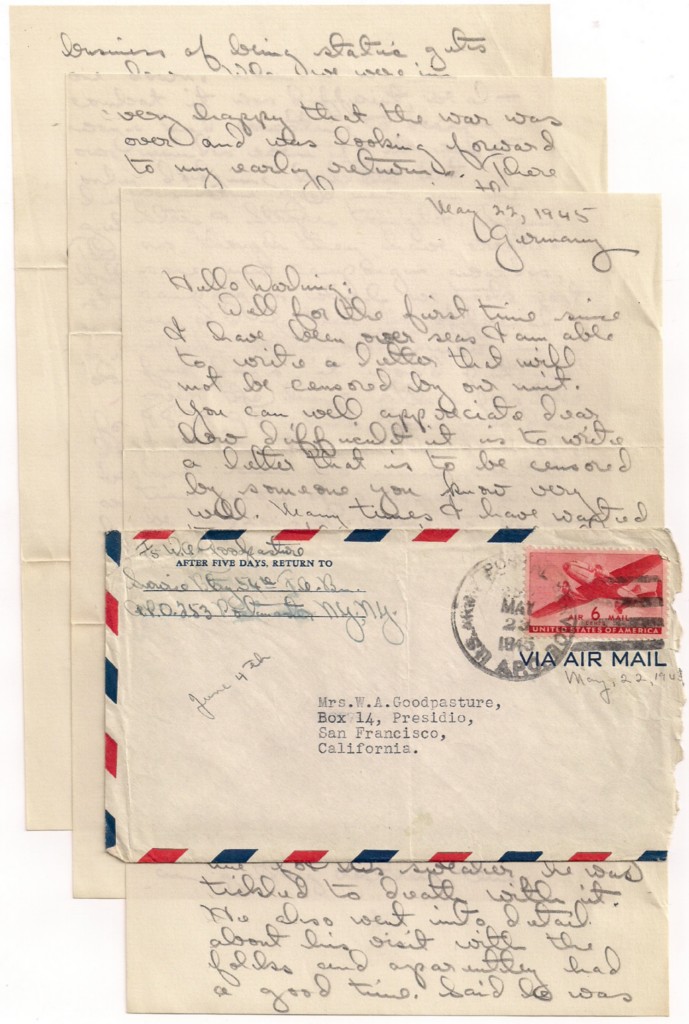 business of being static gets
very happy that the war was
over and was looking forward
to my early return. There
May 22, 1945
Germany
Hello Darling:
Well for the first time since
I have been over seas I am able
to write a letter that will
not be censored by our unit.
You can well appriciate dear
how difficult it is to write
a letter that is to be censored
by someone you know very
well. Many times I have wanted
W.A. Goodpasture
AFTER FIVE DAYS, RETURN TO
Service Co. 54th
A.P.O. 253 Postmaster N.Y. N.Y.
U.S. ARMY POSTAL
MAY
23
1945
A.P.O.
AIR 6 CENTS MAIL
UNITED STATES OF AMERICA
VIA AIR MAIL
May, 22, 1945
June 4th
Mrs.W.A.Goodpasture,
Box 14, Presidio,
San Francisco,
California.
me for his sweater he was
tickled to death with it.
He also went into detail
about his visit with the
folks and aparentley had
a good time. Said he was